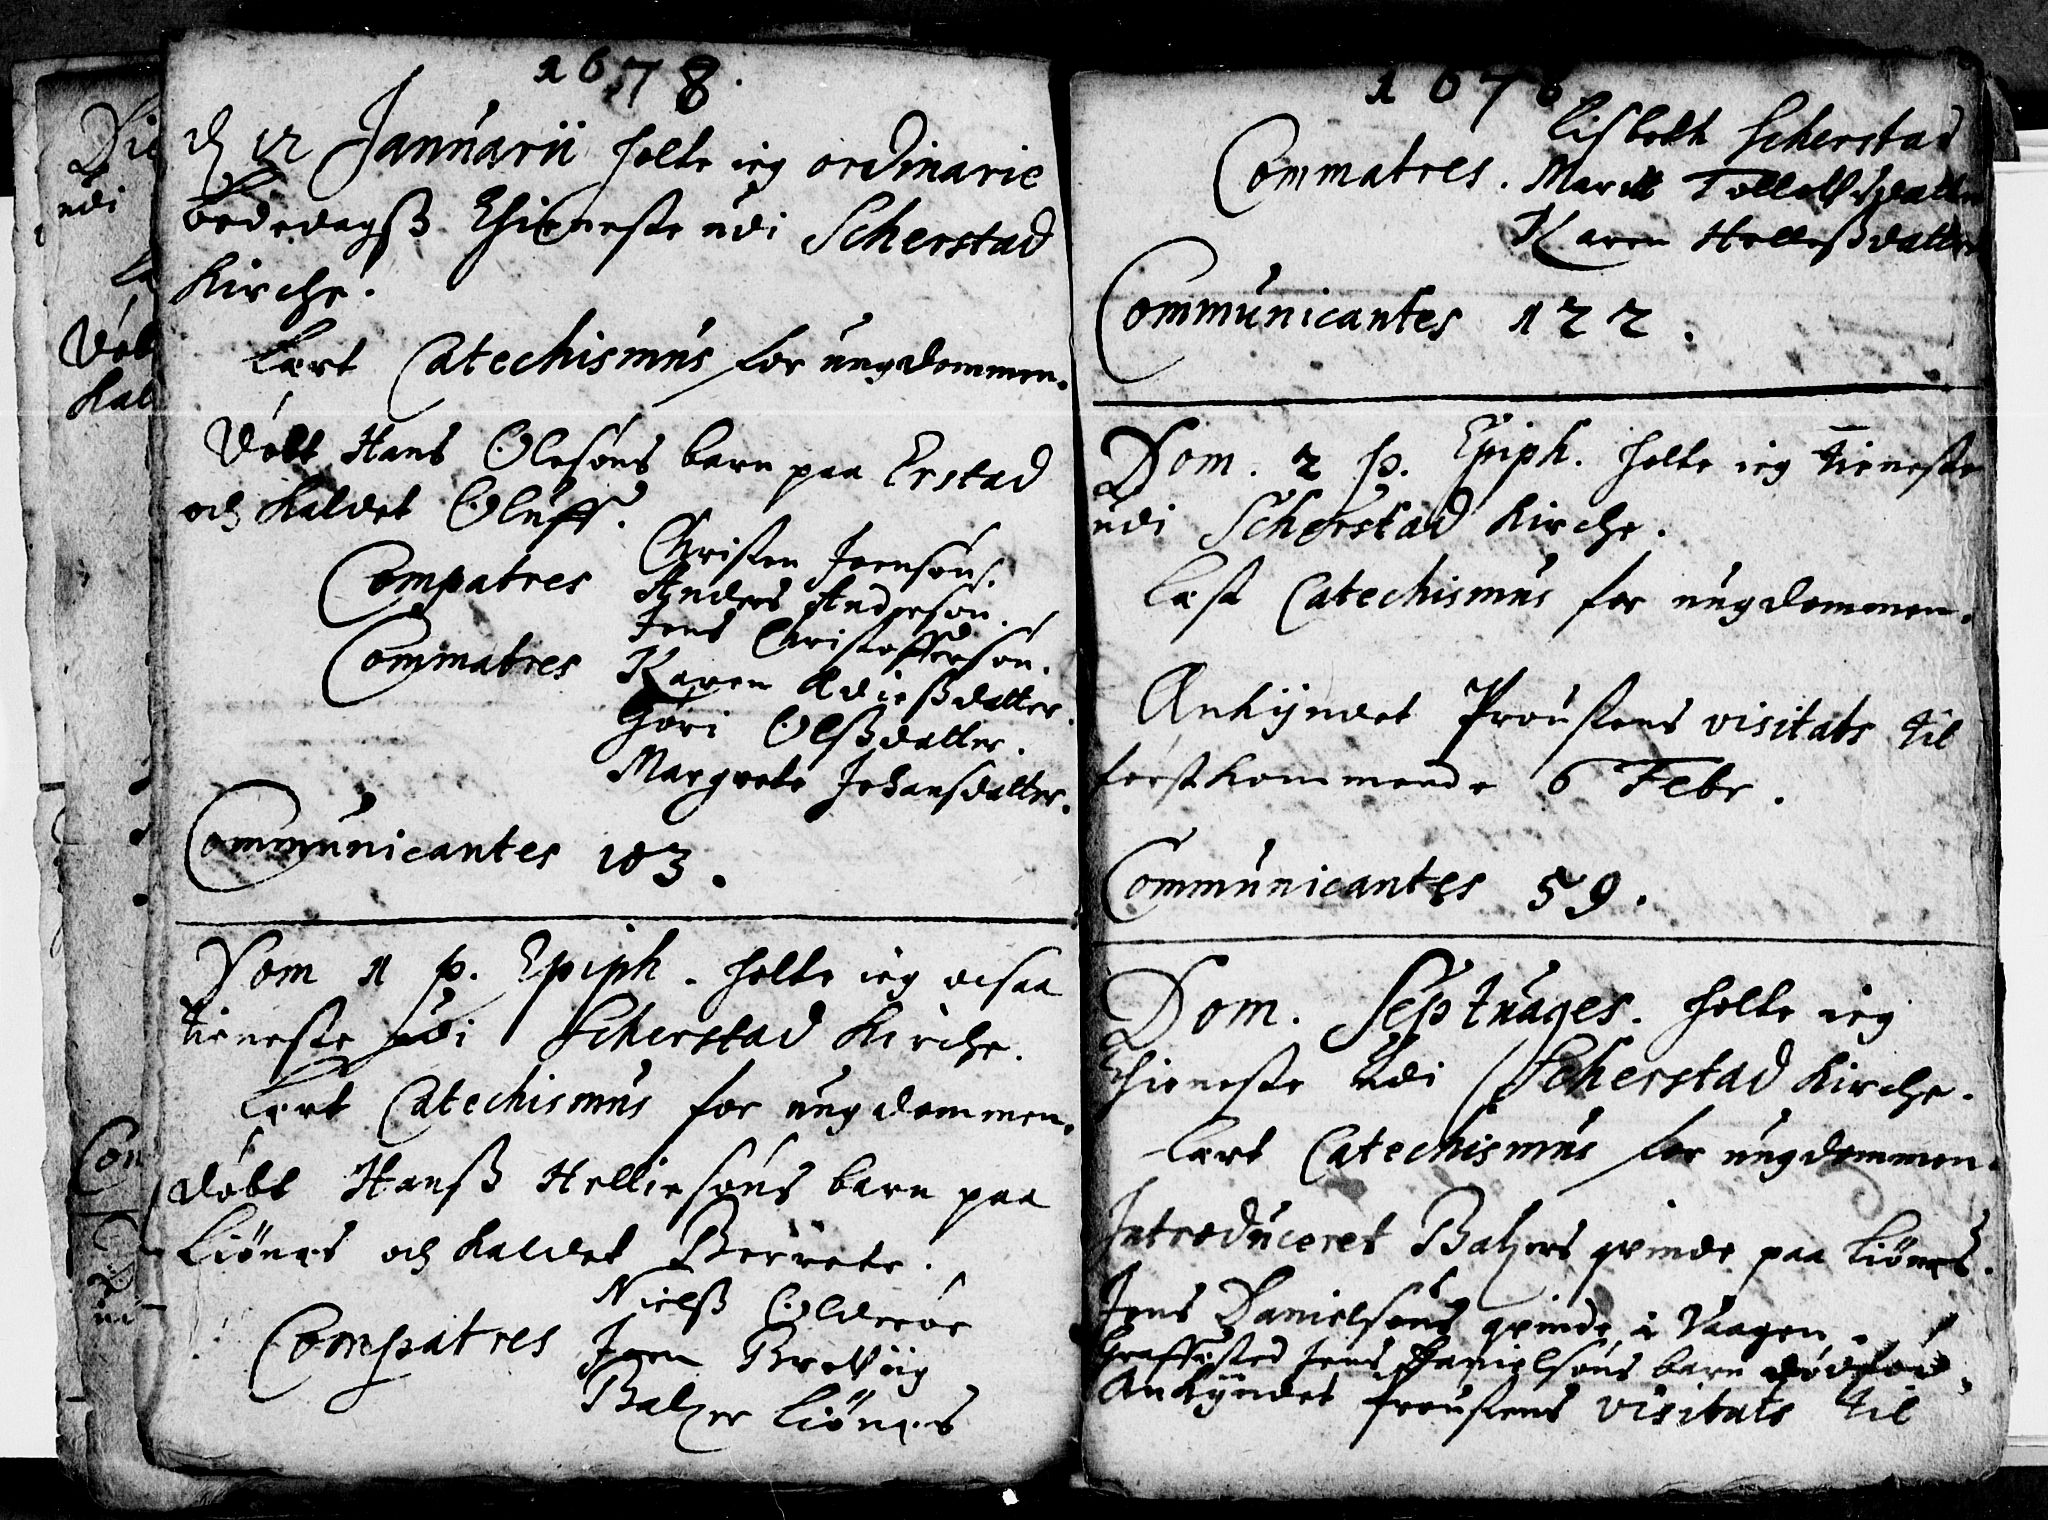 1678.
d 12 Januarii holte ieg ordinarie
bededagß Thieneste udi Scherstad
Kirche.
Lært Catechismus for ungdommen.
Døbt Hans Olesøns barn paa Erstad
och kaldet Oluff.
Compatres Christen Joensøn.
Anders Anderson.
Jens Christofferson.
Commatres Karen Adießdatter.
Gøri Olßdatter.
Margrete Johansdatter.
Communicantes 103.
Dom 1 p. Epiph. holte ieg ocsaa
tieneste udi Scherstad Kirche.
Lært Catechismus for ungdommen.
døbt Hanß Helliesøns barn paa
Liønes och kaldet Berrete.
Compatres Nielß Olderøe
Joen Brekviig
Balzer Liønes
1678
Lisbeth Scherstad
Commatres. Marit Tollelsdatter
Karen Helleßdatter
Communicantes 122.
Dom. 2 p. Epiph. holte ieg Tieneste
udi Scherstad Kirche.
Læst Catechismus for ungdommen.
Ankyndet Proustens visitats til
førstkommende 6 Febr.
Communicantes 59.
Dom. Septuages. holte ieg
Thieneste udi Scherstad Kirche.
Lært Catechismus for ungdommen.
Introduceret Balzers qvinde paa Liønes.
Jens Danielsøns qvinde i Vaagen.
Graffæsted Jens Danielsøns barn dødfød.
Ankyndet proustens visitats til